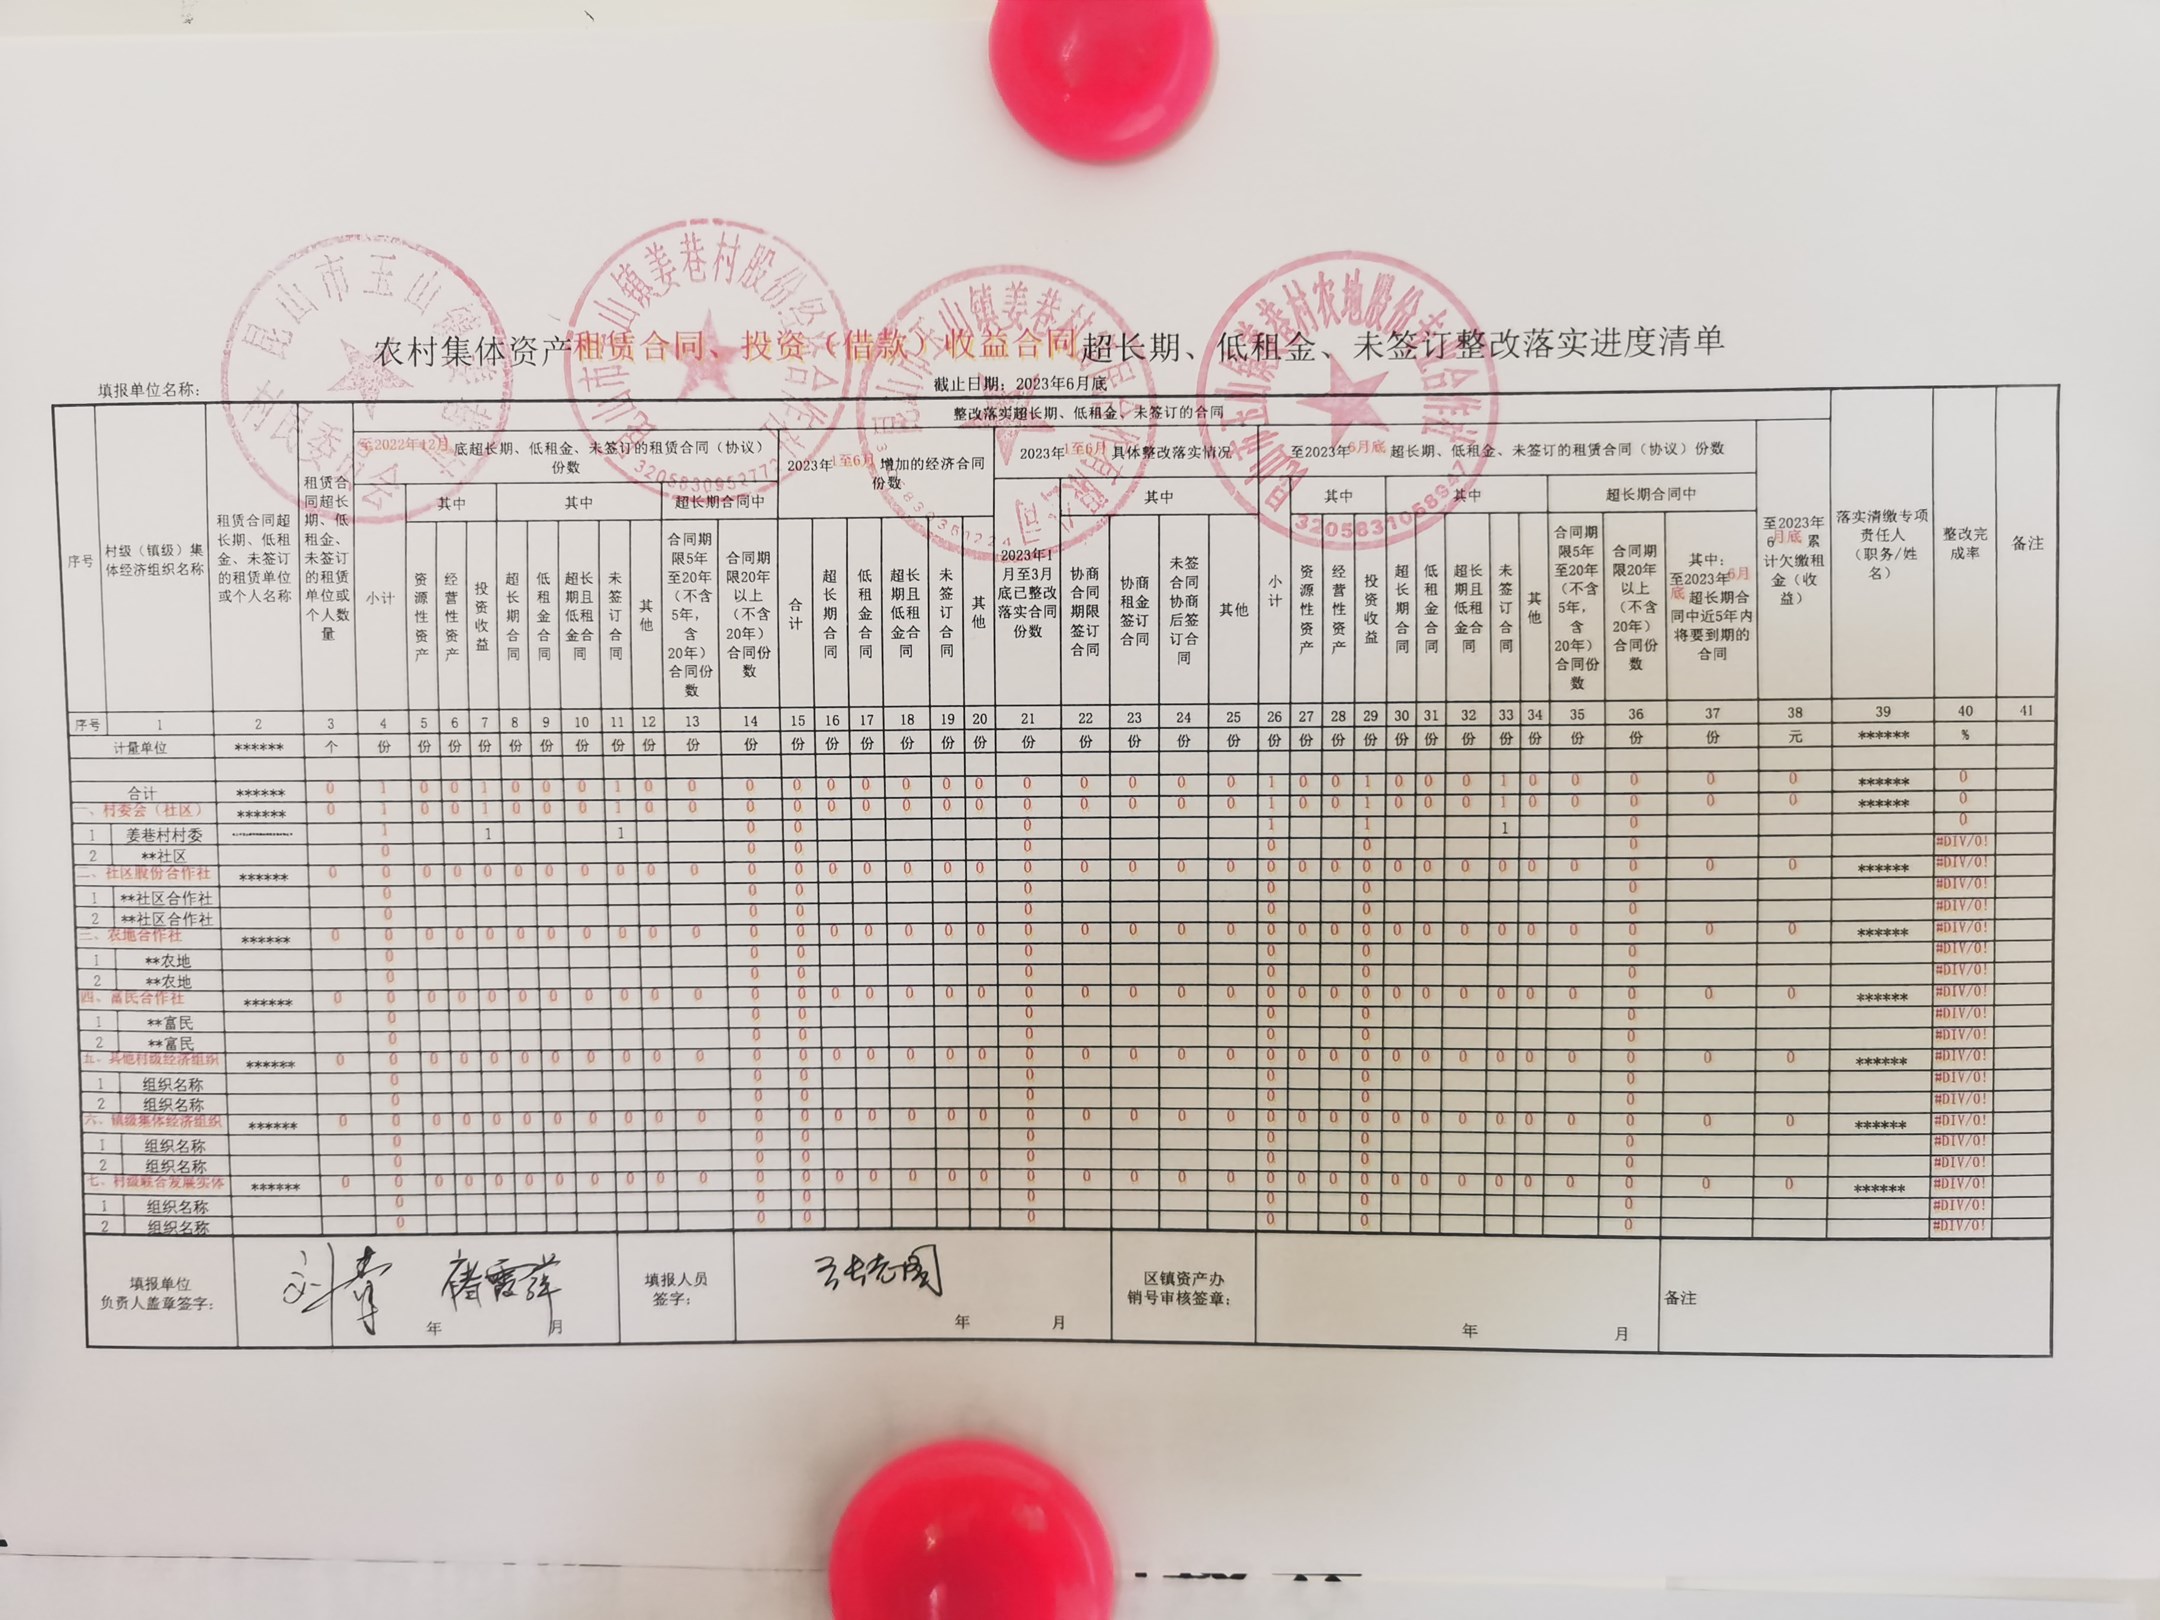 农村集体资产租赁合同、投资（借款）收益合同超长期、低租金、未签订整改落实进度清单
填报单位名称：
截止日期：2023年6月底
整改落实超长期、低租金、未签订的合同
序号
村级（镇级）集体经济组织名称
租赁合同超长期、低租金、未签订的租赁单位或个人名称
租赁合同超长期、低租金、未签订的租赁单位或个人数量
至2022年12月底超长期、低租金、未签订的租赁合同（协议）份数
小计
其中
资源性资产
经营性资产
投资收益
其中
超长期合同
低租金合同
超长期且低租金合同
未签订合同
其他
超长期合同中
合同期限5年至20年（不含5年，含20年）合同份数
合同期限20年以上（不含20年）合同份数
2023年1至6月增加的经济合同份数
合计
超长期合同
低租金合同
超长期且低租金合同
未签订合同
其他
2023年1至6月具体整改落实情况
2023年1月至3月底已整改落实合同份数
其中
协商合同期限签订合同
协商租金签订合同
未签合同协商后签订合同
其他
至2023年6月底超长期、低租金、未签订的租赁合同（协议）份数
小计
其中
资源性资产
经营性资产
投资收益
其中
超长期合同
低租金合同
超长期且低租金合同
未签订合同
其他
超长期合同中
合同期限5年至20年（不含5年，含20年）合同份数
合同期限20年以上（不含20年）合同份数
其中：至2023年6月底超长期合同中近5年内将要到期的合同
至2023年6月底累计欠缴租金（收益）
落实清缴专项责任人（职务/姓名）
整改完成率
备注
序号 1 2 3 4 5 6 7 8 9 10 11 12 13 14 15 16 17 18 19 20 21 22 23 24 25 26 27 28 29 30 31 32 33 34 35 36 37 38 39 40 41
计量单位 ****** 个 份 份 份 份 份 份 份 份 份 份 份 份 份 份 份 份 份 份 份 份 份 份 份 份 份 份 份 份 份 份 份 份 份 份 元 ****** %
合计 ****** 0 1 0 0 1 0 0 0 1 0 0 0 0 0 0 0 0 0 0 0 0 0 0 1 0 0 1 0 0 0 1 0 0 0 0 0 ****** 0
一、村委会（社区） ****** 0 1 0 0 1 0 0 0 1 0 0 0 0 0 0 0 0 0 0 0 0 0 0 1 0 0 1 0 0 0 1 0 0 0 0 0 ****** 0
1 姜巷村村委 1 1 1 0 0 0 1 1 1 0 0
2 **社区 0 0 0 0 0 0 0 #DIV/0!
二、社区股份合作社 ****** 0 0 0 0 0 0 0 0 0 0 0 0 0 0 0 0 0 0 0 0 0 0 0 0 0 0 0 0 0 0 0 0 0 0 0 0 ****** #DIV/0!
1 **社区合作社 0 0 0 0 0 0 0 #DIV/0!
2 **社区合作社 0 0 0 0 0 0 0 #DIV/0!
三、农地合作社 ****** 0 0 0 0 0 0 0 0 0 0 0 0 0 0 0 0 0 0 0 0 0 0 0 0 0 0 0 0 0 0 0 0 0 0 0 0 ****** #DIV/0!
1 **农地 0 0 0 0 0 0 0 #DIV/0!
2 **农地 0 0 0 0 0 0 0 #DIV/0!
四、富民合作社 ****** 0 0 0 0 0 0 0 0 0 0 0 0 0 0 0 0 0 0 0 0 0 0 0 0 0 0 0 0 0 0 0 0 0 0 0 0 ****** #DIV/0!
1 **富民 0 0 0 0 0 0 0 #DIV/0!
2 **富民 0 0 0 0 0 0 0 #DIV/0!
五、其他村级经济组织 ****** 0 0 0 0 0 0 0 0 0 0 0 0 0 0 0 0 0 0 0 0 0 0 0 0 0 0 0 0 0 0 0 0 0 0 0 0 ****** #DIV/0!
1 组织名称 0 0 0 0 0 0 0 #DIV/0!
2 组织名称 0 0 0 0 0 0 0 #DIV/0!
六、镇级集体经济组织 ****** 0 0 0 0 0 0 0 0 0 0 0 0 0 0 0 0 0 0 0 0 0 0 0 0 0 0 0 0 0 0 0 0 0 0 0 0 ****** #DIV/0!
1 组织名称 0 0 0 0 0 0 0 #DIV/0!
2 组织名称 0 0 0 0 0 0 0 #DIV/0!
七、村级联合发展实体 ****** 0 0 0 0 0 0 0 0 0 0 0 0 0 0 0 0 0 0 0 0 0 0 0 0 0 0 0 0 0 0 0 0 0 0 0 0 ****** #DIV/0!
1 组织名称 0 0 0 0 0 0 0 #DIV/0!
2 组织名称 0 0 0 0 0 0 0 #DIV/0!
填报单位
负责人盖章签字：
年 月
填报人员
签字：
年 月
区镇资产办
销号审核签章：
年 月
备注